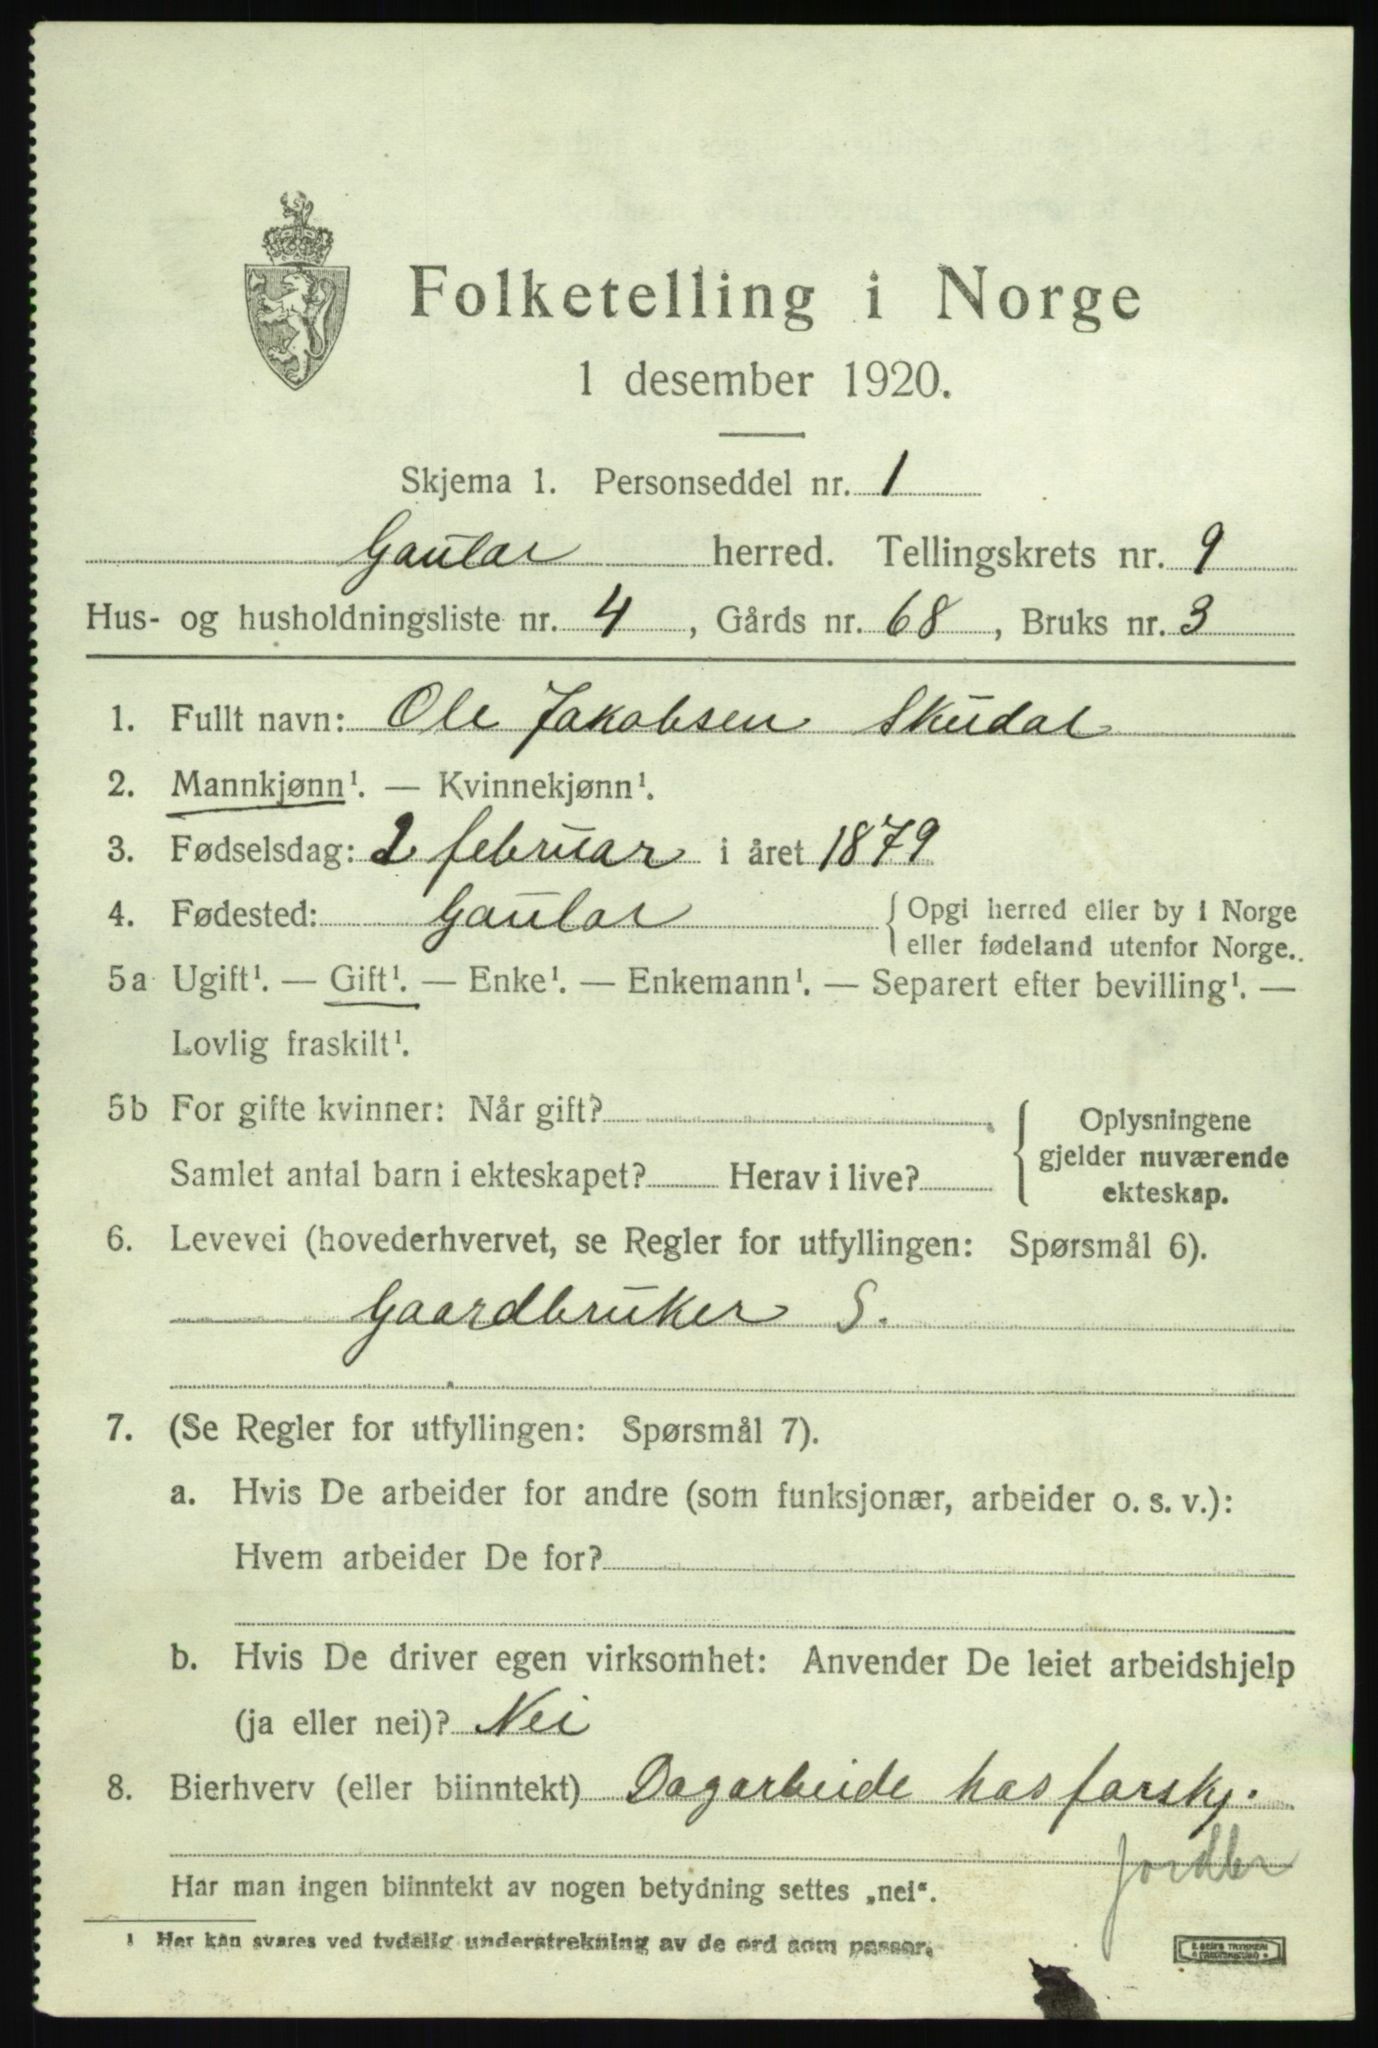 Folketelling i Norge
1 desember 1920.
Skjema 1. Personseddel nr. 1
Gaular herred. Tellingskrets nr. 9
Hus- og husholdningsliste nr. 4, Gårds nr. 68, Bruks nr. 3
1. Fullt navn: Ole Jakobsen Skudal
2. Mannkjønn¹. — Kvinnekjønn¹.
3. Fødselsdag: 2 februar i året 1879
4. Fødested: Gaular { Opgi herred eller by i Norge
eller fødeland utenfor Norge.
5a Ugift¹. — Gift¹. — Enke¹. — Enkemann¹. — Separert efter bevilling¹. —
Lovlig fraskilt¹.
5b For gifte kvinner: Når gift?
Samlet antal barn i ekteskapet? Herav i live?
{ Oplysningene
gjelder nuværende
ekteskap.
6. Levevei (hovederhvervet, se Regler for utfyllingen: Spørsmål 6).
Gaardbruker S.
7. (Se Regler for utfyllingen: Spørsmål 7).
a. Hvis De arbeider for andre (som funksjonær, arbeider o. s. v.):
Hvem arbeider De for?
b. Hvis De driver egen virksomhet: Anvender De leiet arbeidshjelp
(ja eller nei)? Nei
8. Bierhverv (eller biinntekt) Dagarbeide hos forskj.
jordbr
Har man ingen biinntekt av nogen betydning settes „nei“.
¹ Her kan svares ved tydelig understrekning av de ord som passer.